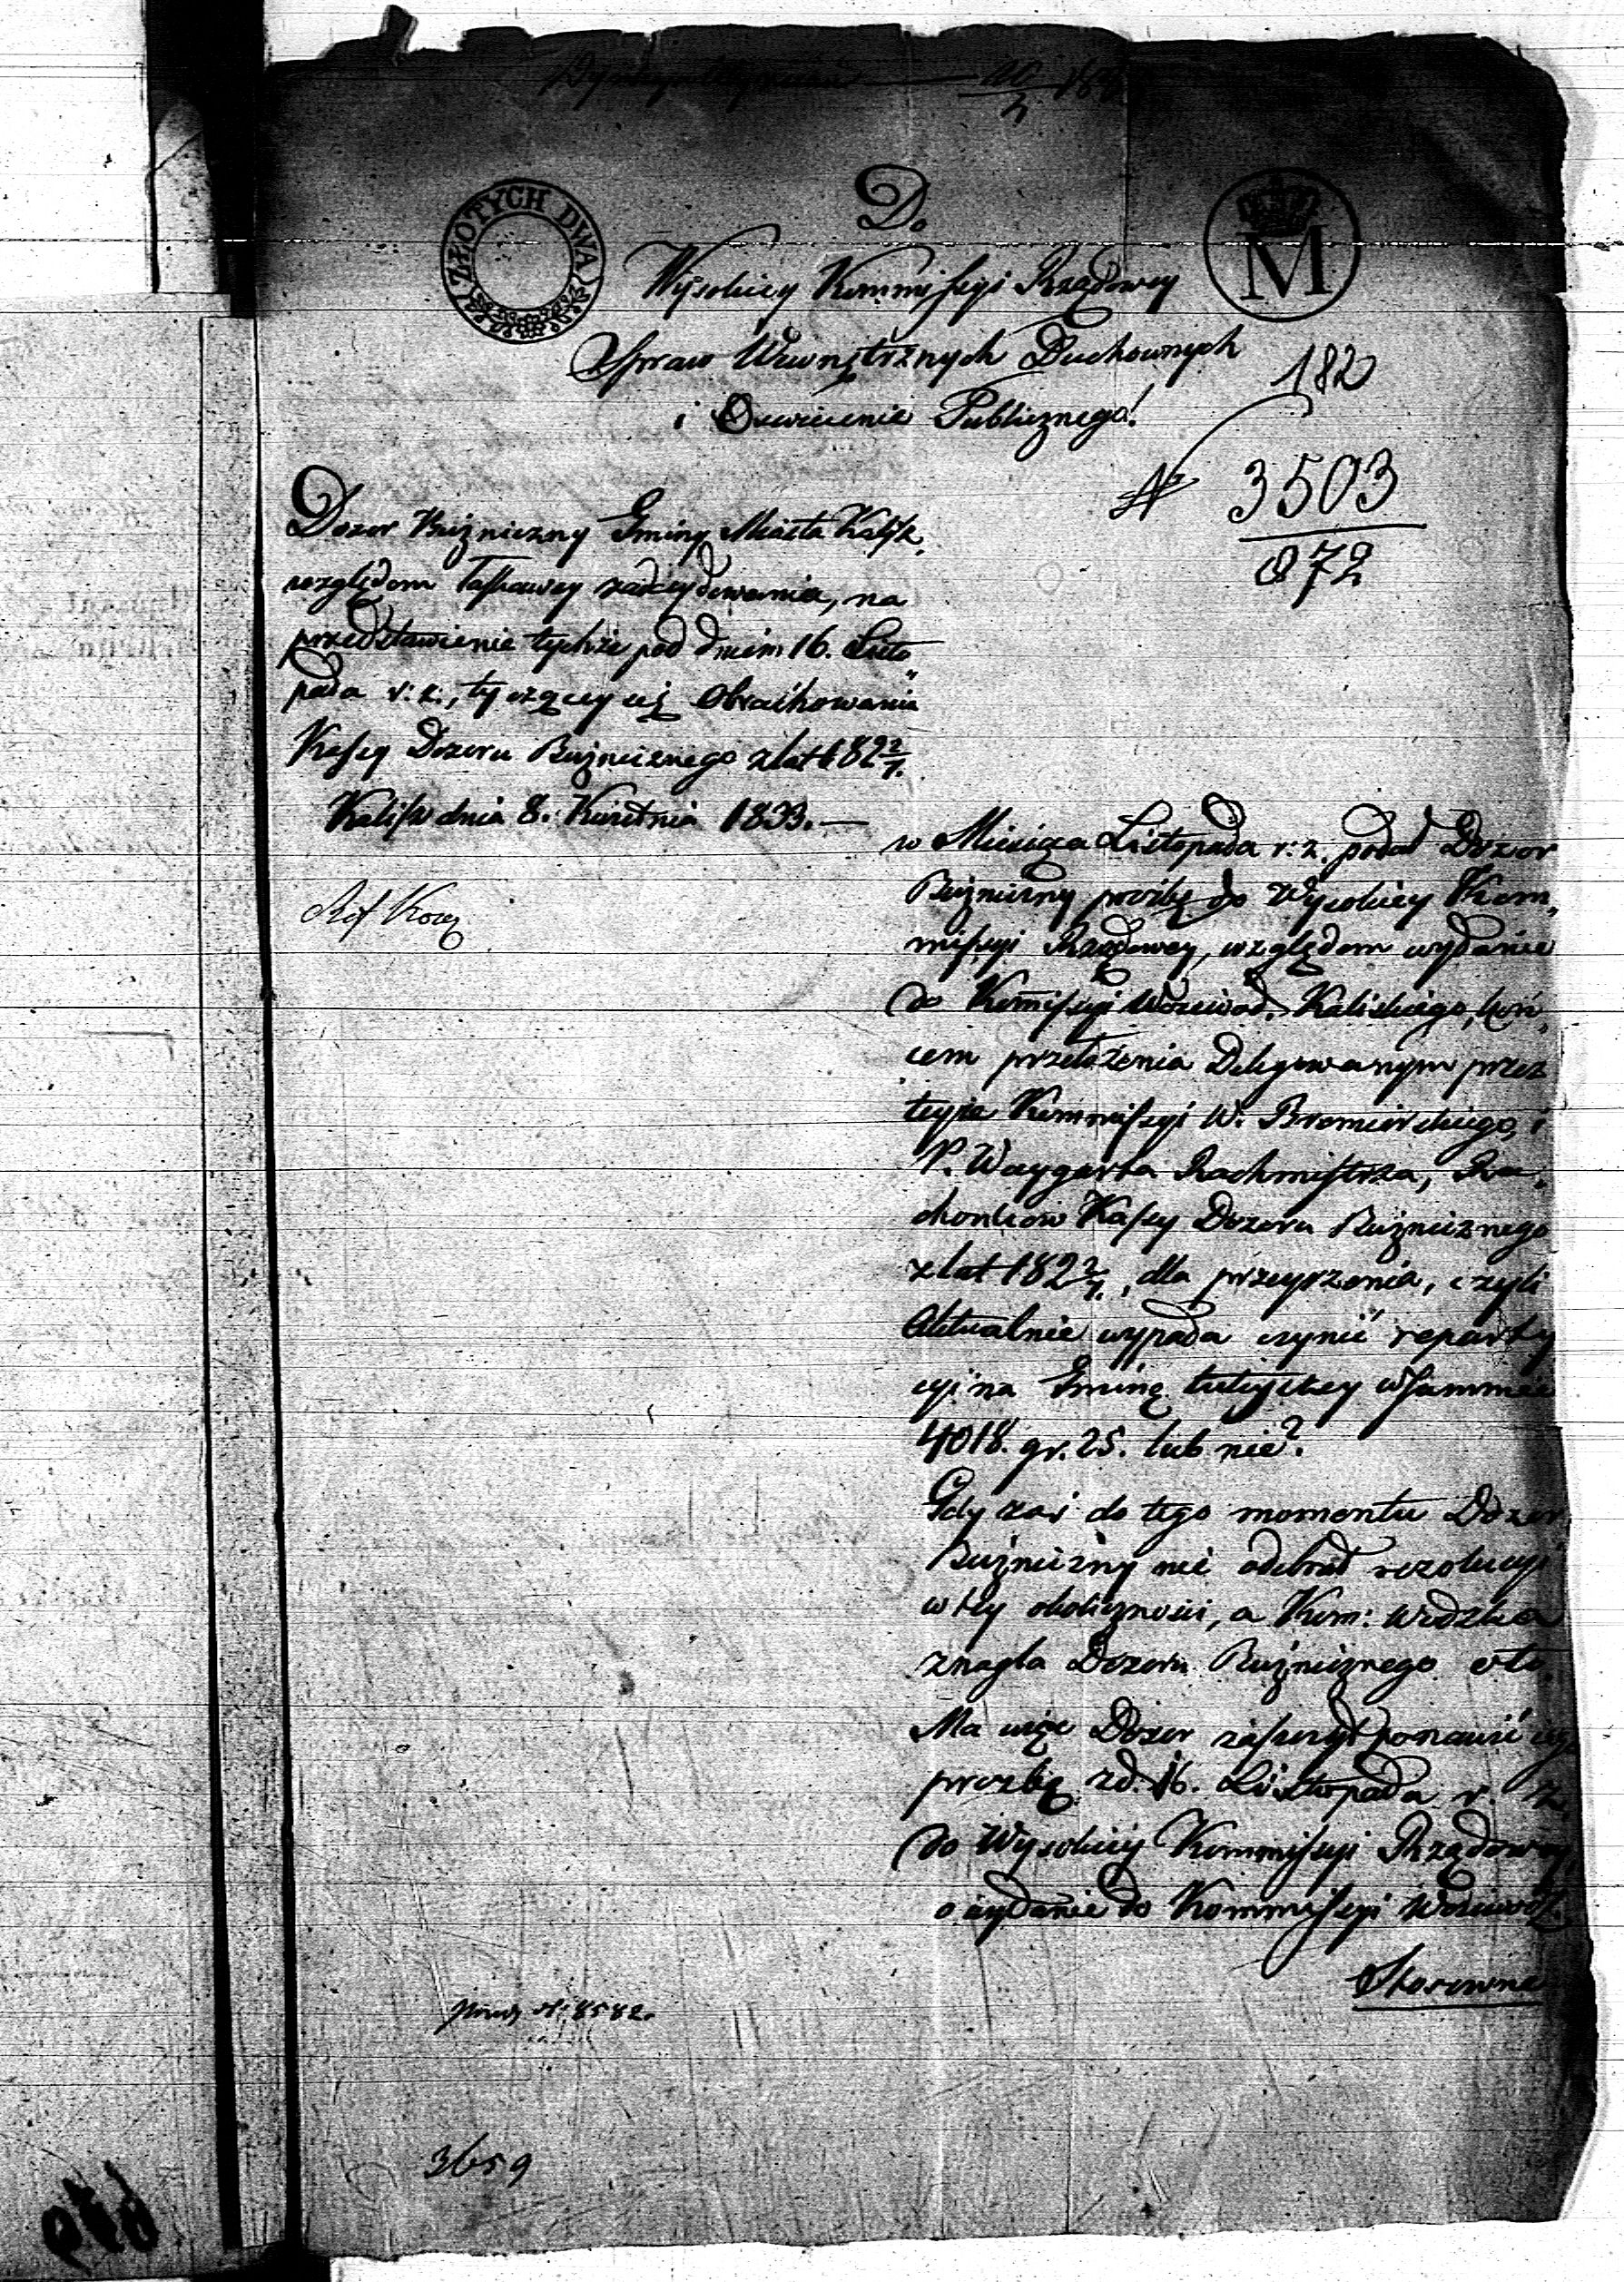 ZŁOTYCH DWA
M
Do
Wysokiey Kommissyi Rządowey
Spraw Wewnętrznych Duchownych
i Oswiecenia Publicznego!
182
N 3503
872
Dozor Bużniczny Gminy Miasta Kalisz,
względem łaskawey zadecydowania, na
przedstawienie tychże pod dniem 16. Listo„
pada r: z:, tyczącey się Obrachowania
Kassy Dozoru Bużnicznego z lat 182 2/7.
Kalisz dnia 8. Kwietnia 1833.—
w Miesiącu Listopada r: z. podał Dozor
Bużniczny prozbę do Wysokiey Kom„
missyi Rządowey, względem wydanie
do Kommissyi Woiewod. Kaliskiego, koń„
cem przełożenia Delegowanym przez
teyże Kommissyi W. Bromirskiego, i
P. Waygarta Rachmistrza, Ra„
chonków Kassy Dozoru Bużnicznego
z lat 182 2/7., dla przeyrzenia, czyli
Aktualnie wypada czynić reparty
cyi na Gminę tuteyszey w summie
4018. gr. 25. lub nie?
Gdy zaś do tego momentu Dozor
Bużniczny nie odebrał rezolucyi
w tey okoliczności, a Kom: Wdzka
znagla Dozoru Bużnicznego oto.
Ma więc Dozor zaszczyt ponawić
prozbę z d. 16. Listopada r. z.
do Wysokiey Kommissyi Rządowey,
o wydanie do Kommissyi Woiewodz.
Stosowne
8582.
3659